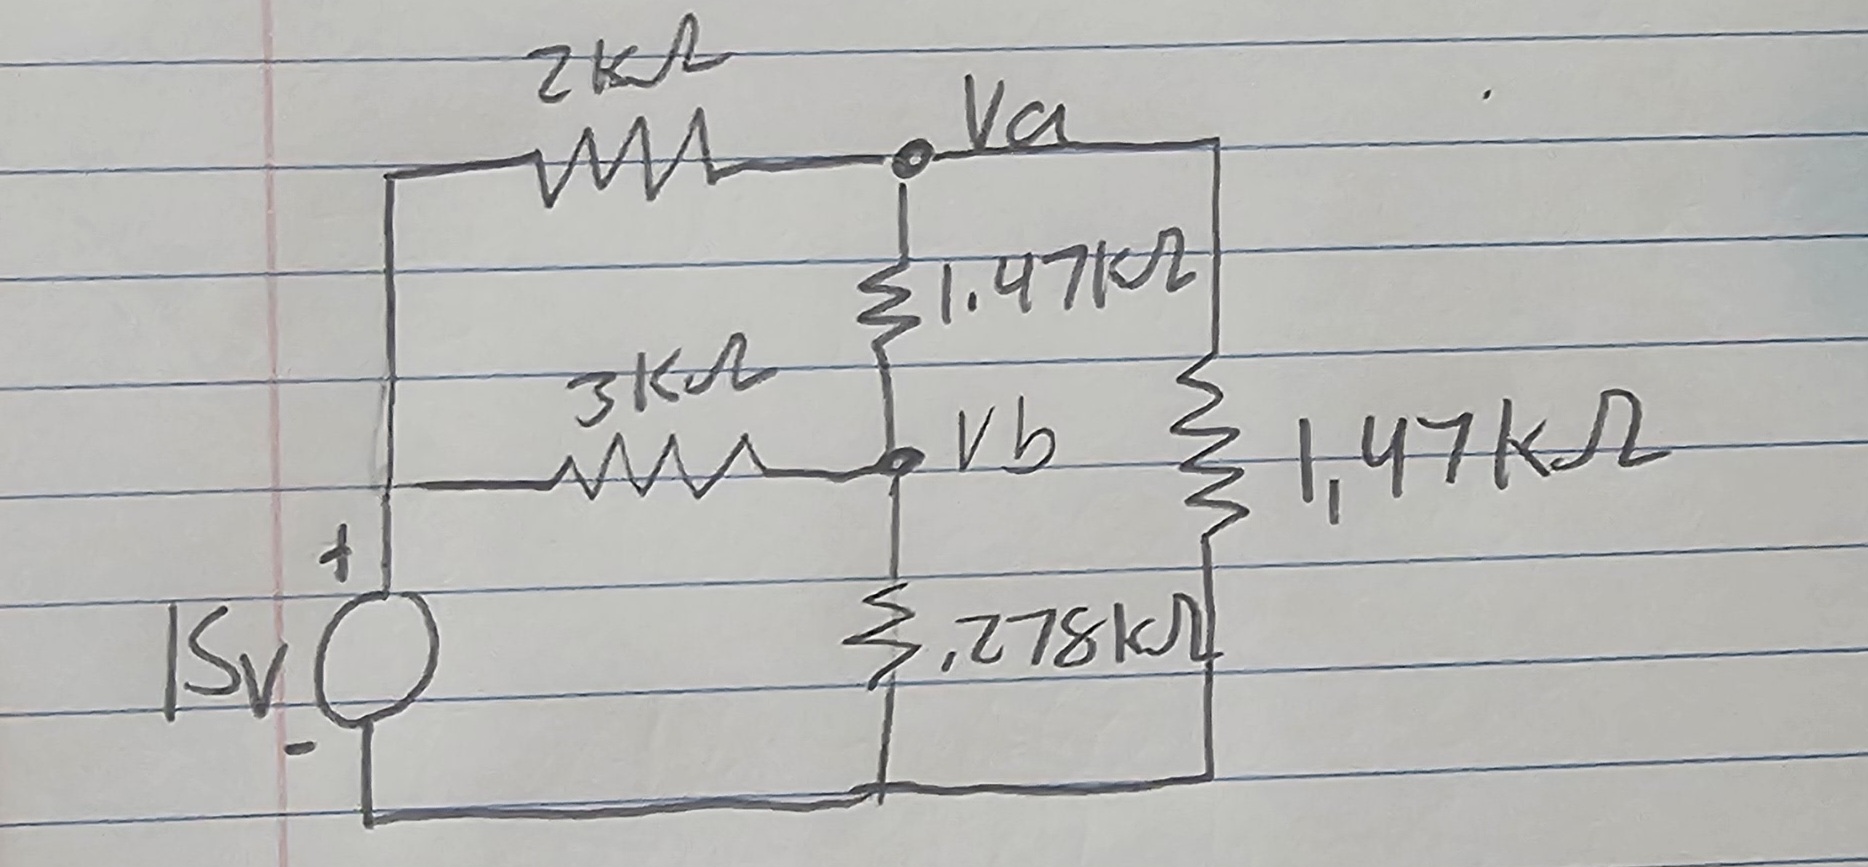 2kΩ
Va
1.47kΩ
3kΩ
Vb
1,47kΩ
+
15v
-
.278kΩ